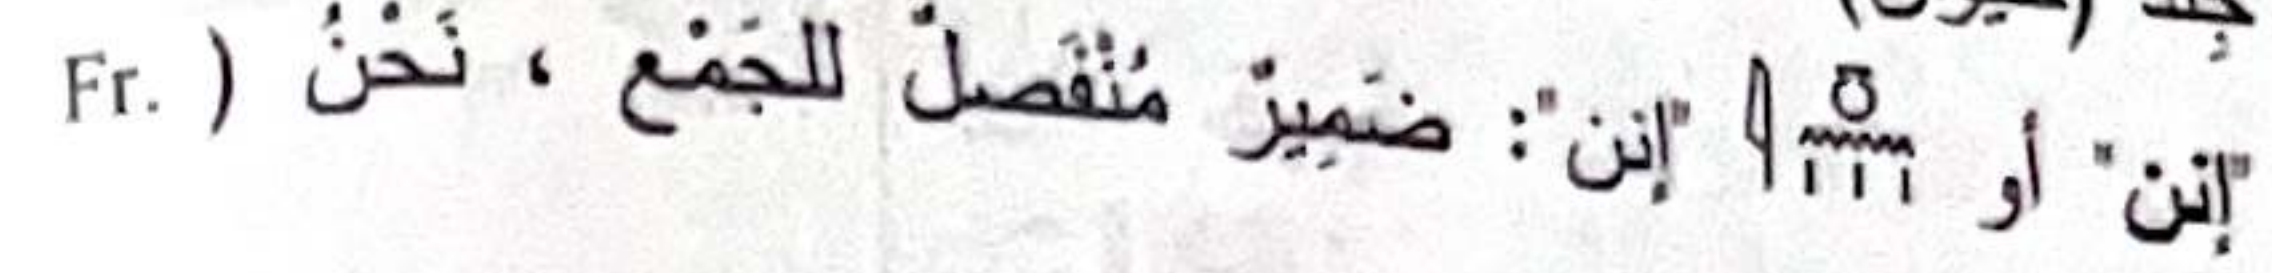 "إنن" أو 𓇋𓏌𓈖𓏥 "إنن": ضَمِيرٌ مُنْفَصلٌ للجَمْع ، نَحْنُ ( Fr.